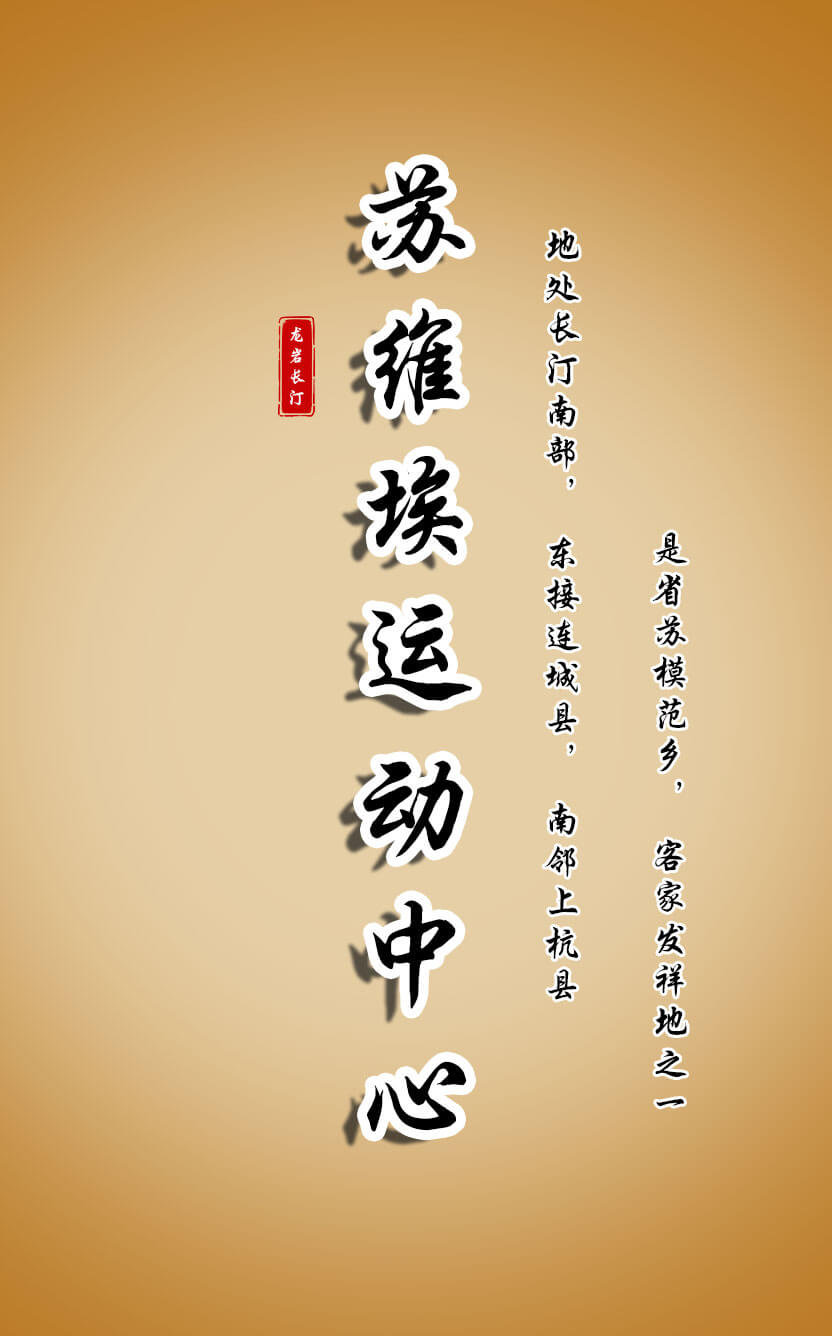 是省苏模范乡，客家发祥地之一
地处长汀南部，东接连城县，南邻上杭县
苏维埃运动中心
龙岩长汀